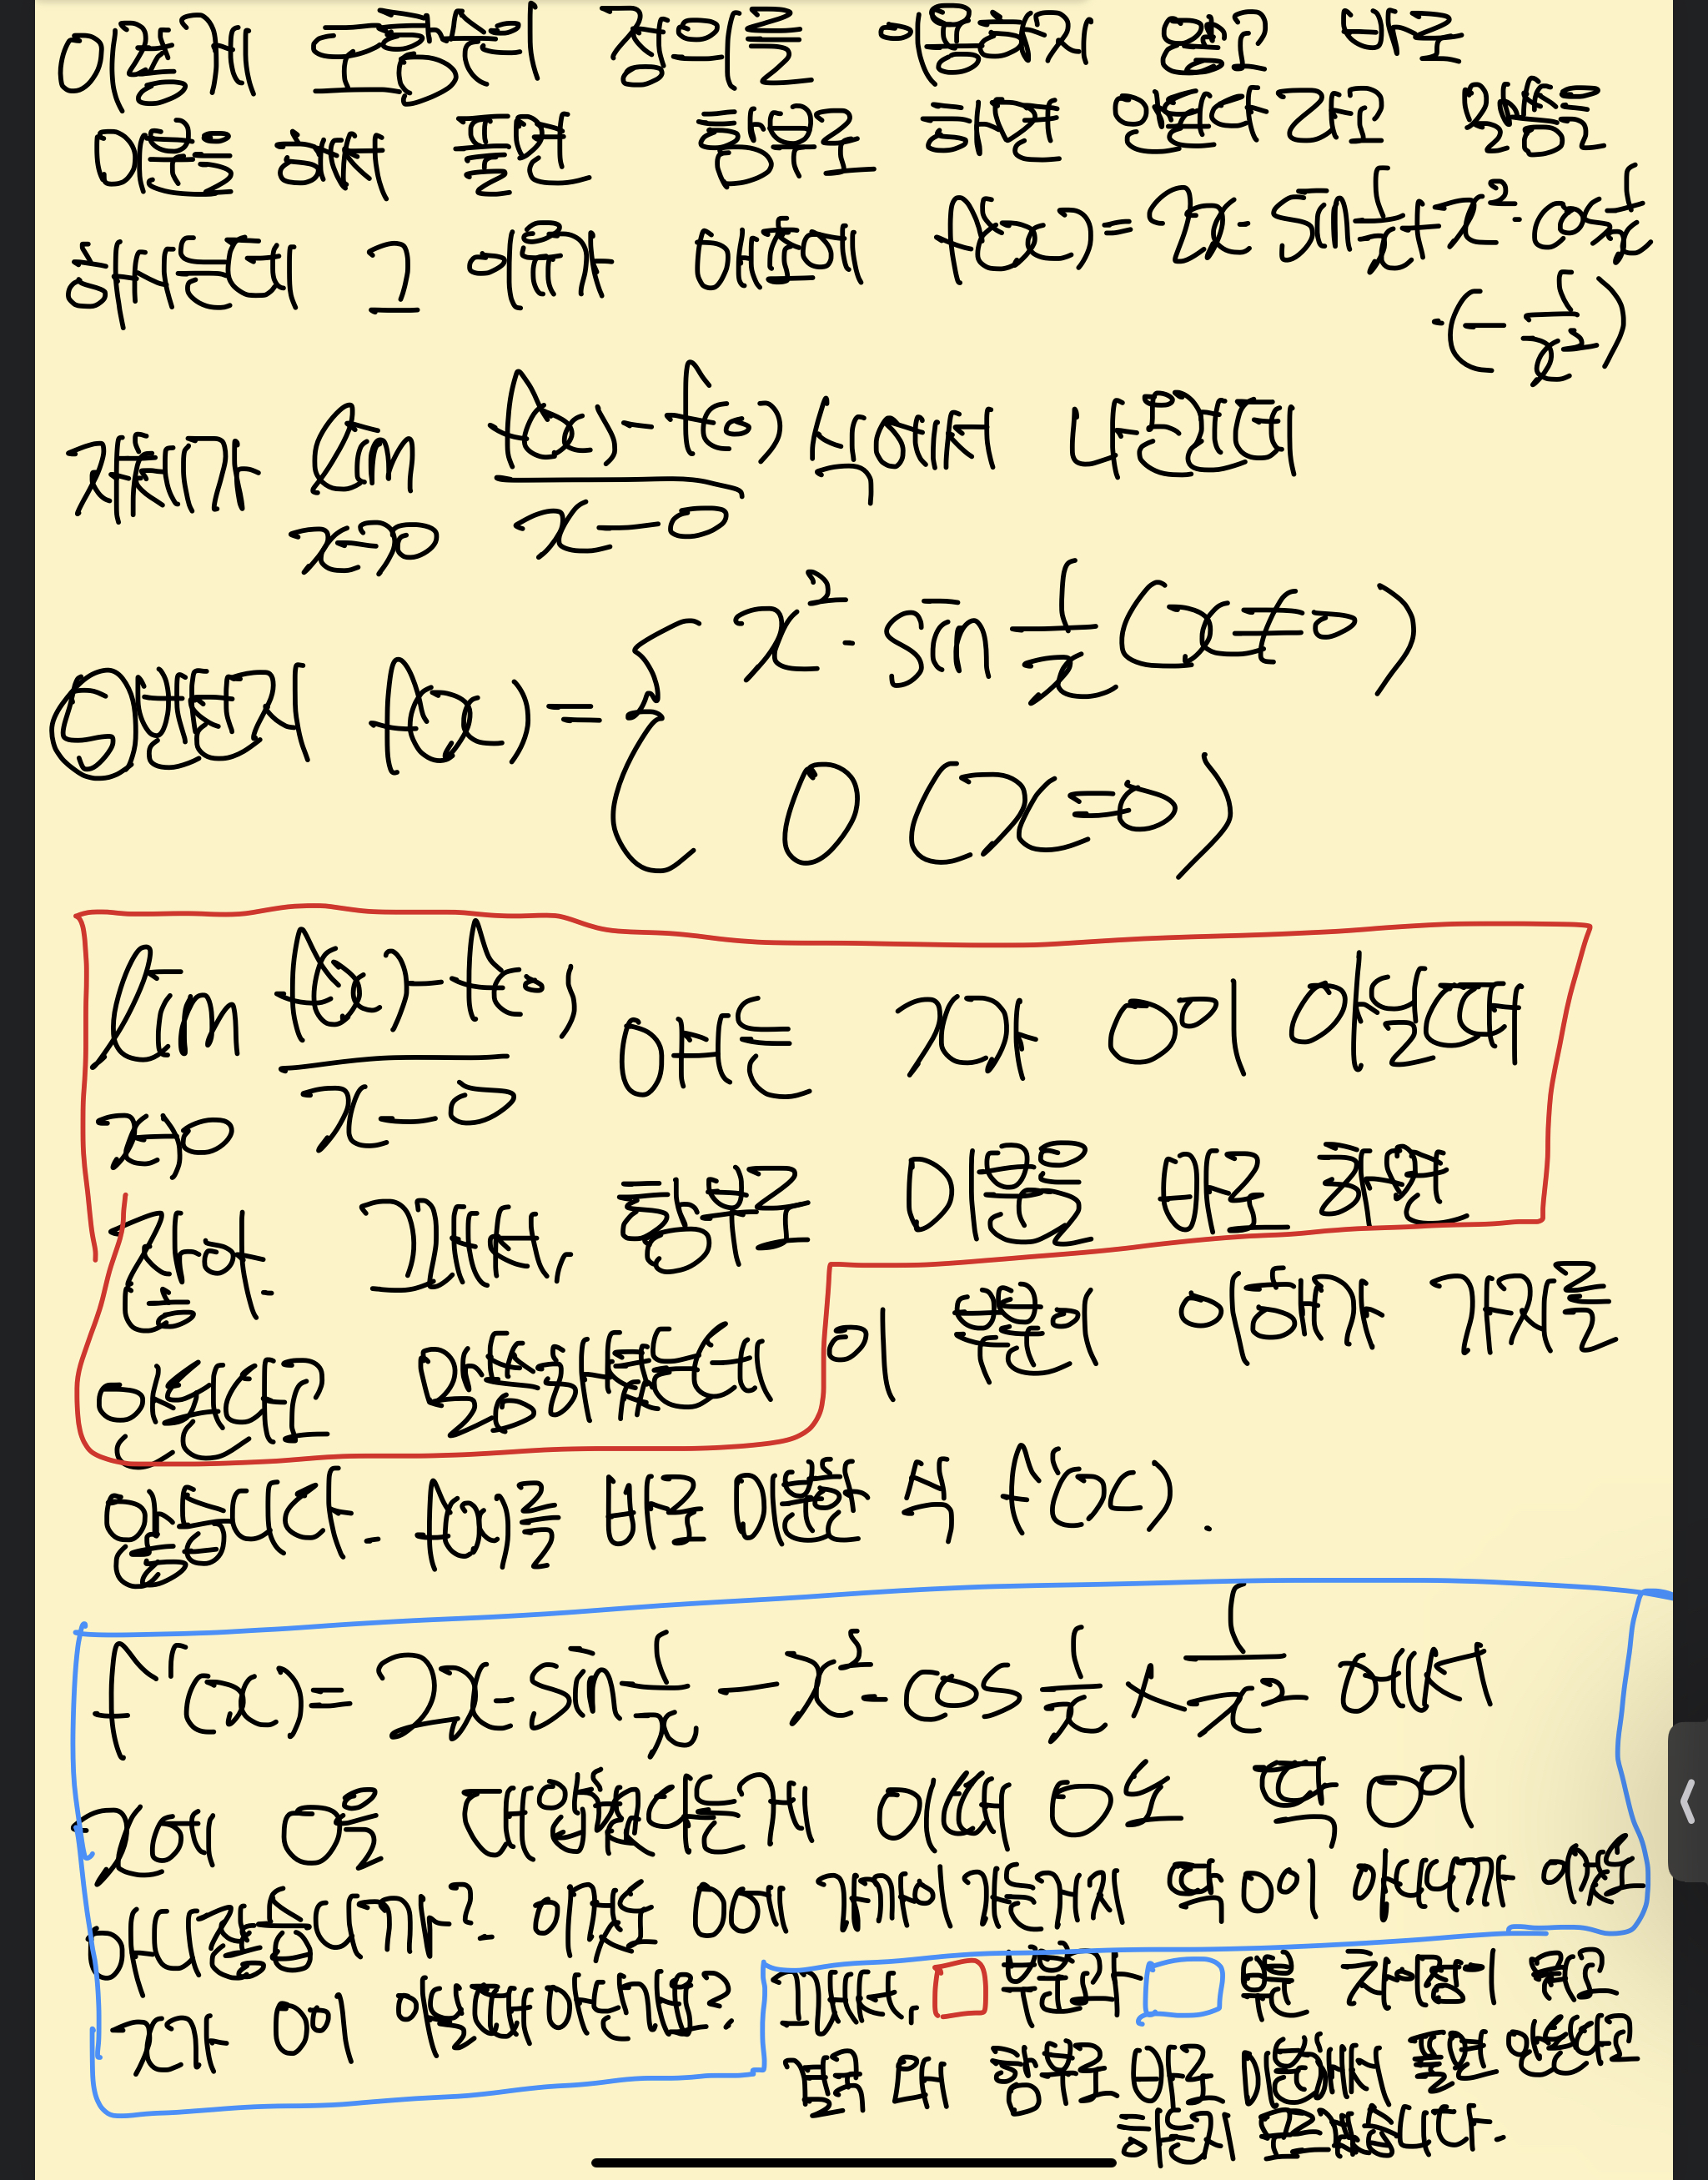 이렇게 도함수의 정의를 이용하지 않고 바로
미분을 해서 풀면 함부로 하면 안된다고 말씀
하셨는데 그 예가 대표적이 f(x)=2x·sin 1/x+x²·cos 1/x
·(-1/x²)
제가 lim x→0 f(x)-f(0)/x-0 식에서
⑤번에서 f(x)= { x²·sin 1/x (x≠0)
0 (x=0)
lim x→0 f(x)-f(0)/x-0 에서는 x가 0이 아닐때
잖아. 그래서, 함부로 미분을 바로 하면
안된다고 말씀하셨는데 이 말이 이해가 가지를
않습니다. f(x)를 바로 미분한 식 f'(x).
f'(x)=2x·sin 1/x - x²·cos 1/x × 1/x² 에서
x에 0을 대입했는데 이때 0도 딱 0이
아니었습니까? 이것도 0에 가까이 가는거지 딱 0이 아니니까 이것도
x가 0이 일때 아닌가요? 그래서, □ 부분과 □ 은 차이점이 뭐고
뭘까 왜 함부로 바로 미분해서 풀면 안된다고
하는지 모르겠습니다.